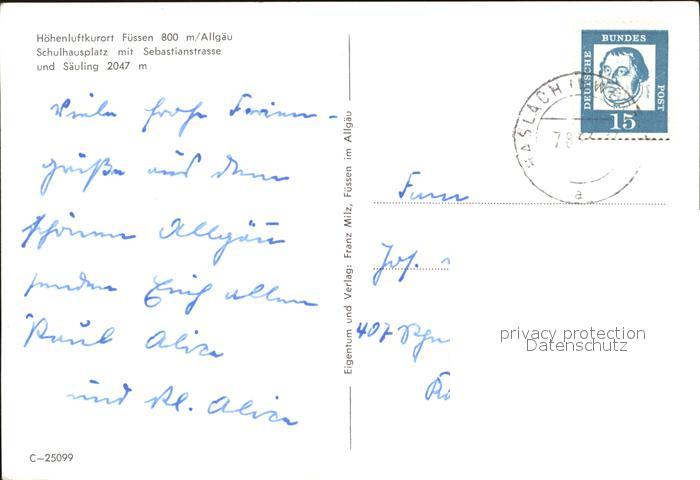 Höhenluftkurort Füssen 800 m/Allgäu
Schulhausplatz mit Sebastianstrasse
und Säuling 2047 m
Viele frohe Ferien-
grüße aus dem
schönen Allgäu
senden Euch allen
Paul Alice
und Kl. Alice
C—25099
Eigentum und Verlag: Franz Milz, Füssen im Allgäu
DEUTSCHE
BUNDES
POST
15
HASLACH
a
Fam
Jos.
407
privacy protection
Datenschutz